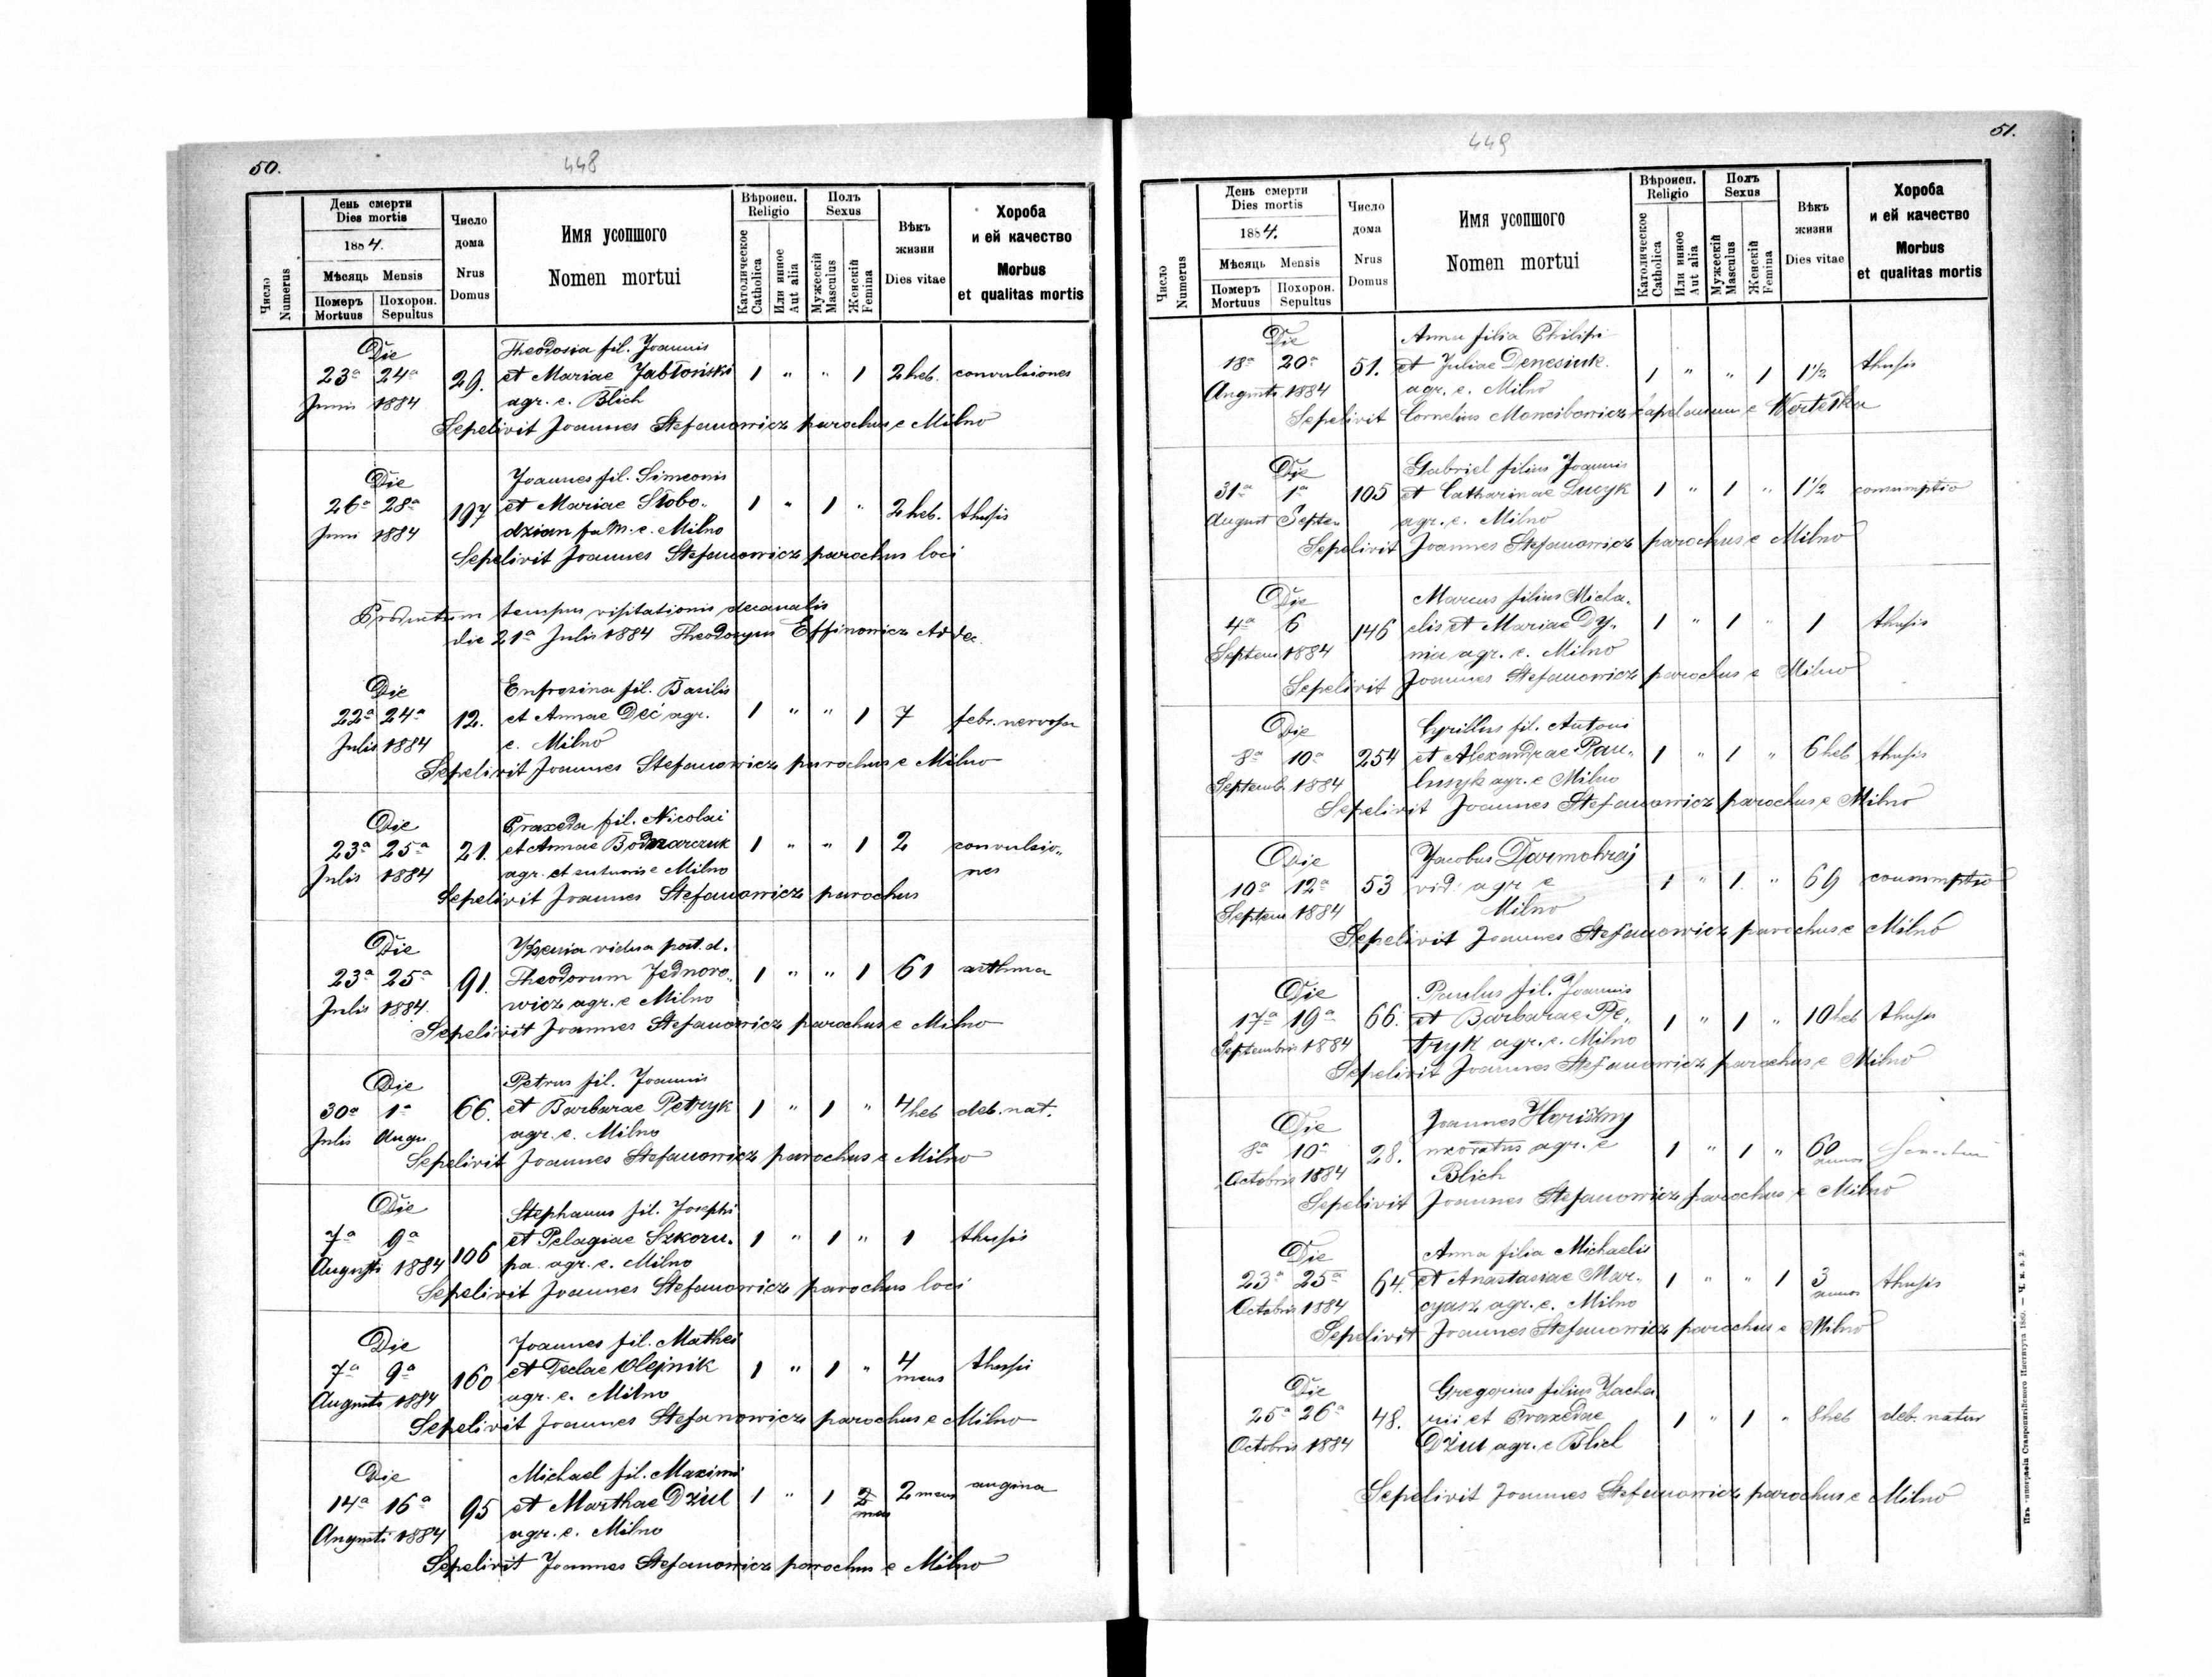 50.
448
Число Numerus
День смерти
Dies mortis
1884.
Мѣсяць Mensis
Померъ Mortuus
Похорон. Sepultus
Число дома
Nrus Domus
Имя усопшого
Nomen mortui
Вѣроисп.
Religio
Католическое Catholica
Или инное Aut alia
Полъ
Sexus
Мужескій Masculus
Женскій Femina
Вѣкъ жизни
Dies vitae
Хороба
и ей качество
Morbus
et qualitas mortis
Die Theodosia fil. Joannis
23a 24a 29. et Mariae Jabłoński 1 " " 1 2 heb. convulsiones
Junii 1884 agr. e. Blich
Sepelivit Joannes Stefanowicz parochus e Milno
Die Joannes fil. Simeonis
26a 28a 197 et Mariae Słobo- 1 " 1 " 2 heb. thusis
Junii 1884 dzian fam. e. Milno
Sepelivit Joannes Stefanowicz parochus loci
Productum tempus visitationis decanalis
die 21a Julii 1884 Theodorus Effinowicz
Die Eufrosina fil. Basilii
22a 24a 12. et Annae Deć agr. 1 " " 1 7 febr. nervosa
Julii 1884 e. Milno
Sepelivit Joannes Stefanowicz parochus e Milno
Die Praxeda fil. Nicolai
23a 25a 21. et Annae Bodnarczuk 1 " " 1 2 convulsio-
Julii 1884 agr. et sutoris e Milno nes
Sepelivit Joannes Stefanowicz parochus
Die Xenia vidua post. d.
23a 25a 91. Theodorum Jednoro- 1 " " 1 61 asthma
Julii 1884. wicz agr. e Milno
Sepelivit Joannes Stefanowicz parochus e Milno
Die Petrus fil. Joannis
30a 1a 66. et Barbarae Petryk 1 " 1 " 4 heb deb. nat.
Julii Augu. agr. e. Milno
Sepelivit Joannes Stefanowicz parochus e Milno
Die Stephanus fil. Josephi
7a 9a 106 et Pelagiae Szkoru- 1 " 1 " 1 thusis
Augusti 1884 pa agr. e. Milno
Sepelivit Joannes Stefanowicz parochus loci
Die Joannes fil. Mathei
7a 9a 160 et Teclae Olejnik 1 " 1 " 4 mens thusis
Augusti 1884 agr. e. Milno
Sepelivit Joannes Stefanowicz parochus e Milno
Die Michael fil. Maximi
14a 16a 95 et Marthae Dziul 1 " 1 2 mens 2 mens angina
Augusti 1884 agr. e. Milno
Sepelivit Joannes Stefanowicz parochus e Milno
51.
449
Число Numerus
День смерти
Dies mortis
1884.
Мѣсяць Mensis
Померъ Mortuus
Похорон. Sepultus
Число дома
Nrus Domus
Имя усопшого
Nomen mortui
Вѣроисп.
Religio
Католическое Catholica
Или инное Aut alia
Полъ
Sexus
Мужескій Masculus
Женскій Femina
Вѣкъ жизни
Dies vitae
Хороба
и ей качество
Morbus
et qualitas mortis
Die Anna filia Philipi
18a 20a 51. et Juliae Denesiuk. 1 " " 1 1 1/2 thusis
Augusti 1884 agr. e. Milno
Sepelivit Cornelius Mancibowicz e Wertełka
Die Gabriel filius Joannis
31a 1a 105 et Catharinae Lucyk 1 " 1 " 1 1/2 consumptio
August Septem agr. e. Milno
Sepelivit Joannes Stefanowicz parochus e Milno
Die Marcus filius Micha-
4a 6 146 elis et Mariae Dy- 1 " 1 " 1 thusis
Septem 1884 nia agr. e. Milno
Sepelivit Joannes Stefanowicz parochus e Milno
Die Cyrillus fil. Antoni
8a 10a 254 et Alexandrae Pau- 1 " 1 " 6 heb thusis
Septemb. 1884 lusyk agr. e Milno
Sepelivit Joannes Stefanowicz parochus e Milno
Die Jacobus Darmohraj
10a 12a 53 vid. agr. e 1 " 1. " 69 consumptio
Septem 1884 Milno
Sepelivit Joannes Stefanowicz parochus e Milno
Die Paulus fil. Joannis
17a 19a 66. et Barbarae Pe- 1 " 1 " 10 heb thusis
Septembris 1884 tryk agr. e. Milno
Sepelivit Joannes Stefanowicz parochus e Milno
Die Joannes Horiszny
8a 10a 28. uxoratus agr. e 1 " 1 " 60 annos
Octobris 1884 Blich
Sepelivit Joannes Stefanowicz parochus e Milno
Die Anna filia Michaelis
23a 25a 64. et Anastasiae Mar- 1 " " 1 3 annos thusis
Octobris 1884 cyasz agr. e. Milno
Sepelivit Joannes Stefanowicz parochus e Milno
Die Gregorius filius Zacha
25a 26a 48. rii et Praxedae 1 " 1 " 8 heb deb. natur
Octobris 1884 Dziul agr. e Blich
Sepelivit Joannes Stefanowicz parochus e Milno